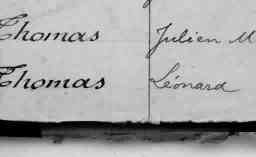 Thomas Julien M
Thomas Léonard